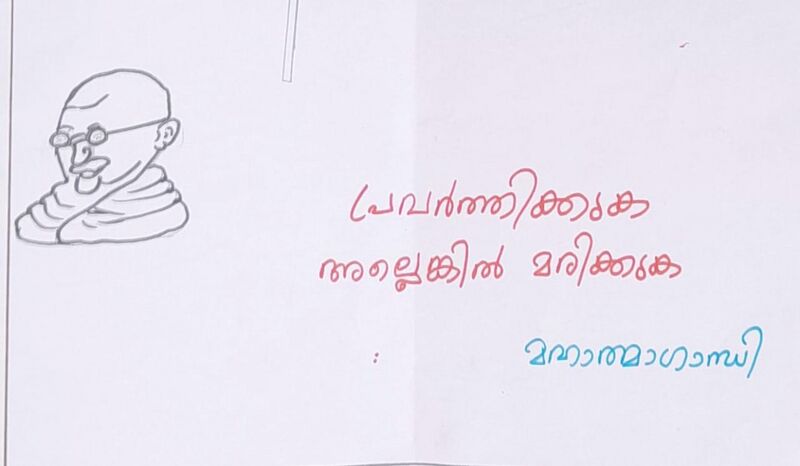 പ്രവർത്തിക്കുക
അല്ലെങ്കിൽ മരിക്കുക
മഹാത്മാഗാന്ധി